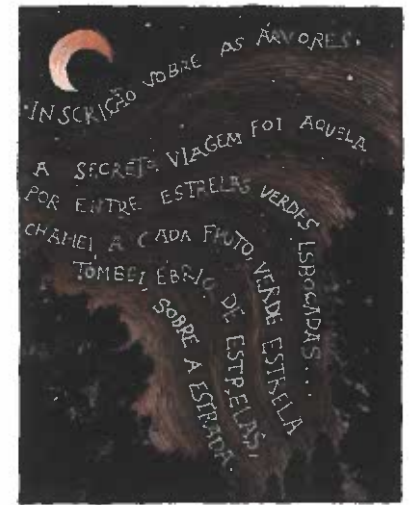 ·INSCRIÇÃO SOBRE AS ÁRVORES.
A SECRETA VIAGEM FOI AQUELA
POR ENTRE ESTRELAS VERDES ESBOÇADAS...
CHAMEI, A CADA FRUTO, VERDE ESTRELA
TOMBEI, EBRIO DE ESTRELAS,
SOBRE A ESTRADA.